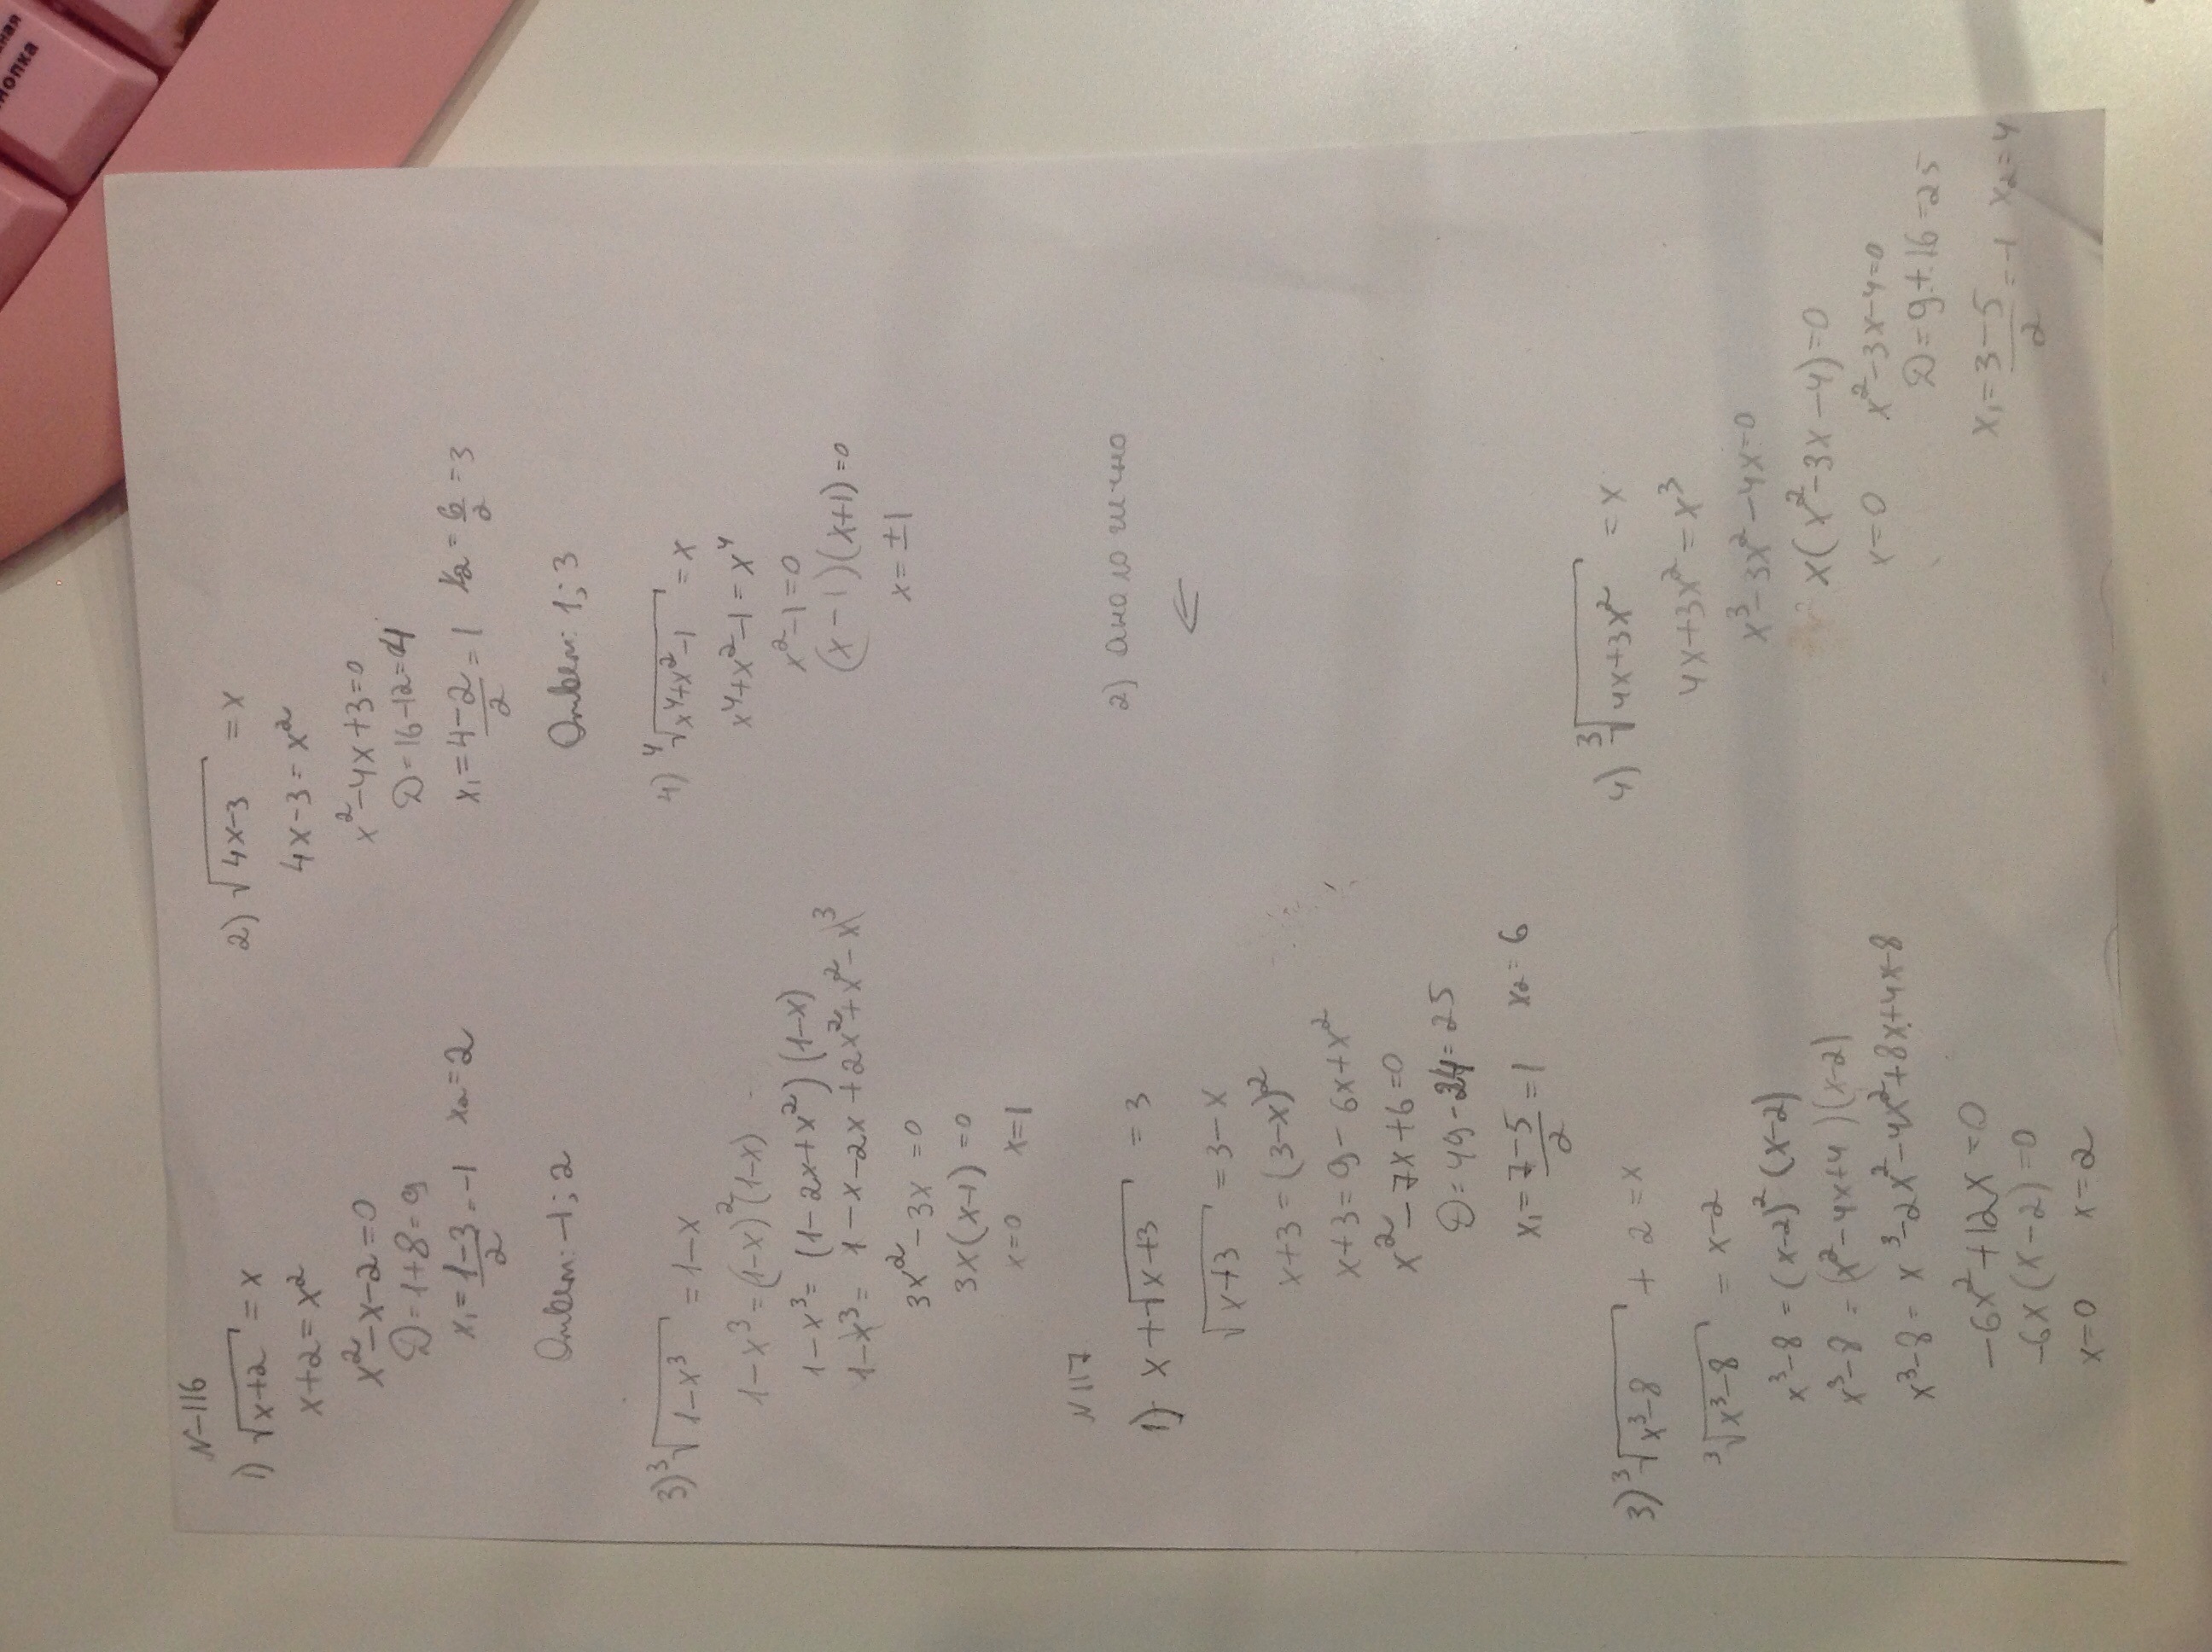 N-116
1) √(x+2) = x
x+2 = x²
x²-x-2=0
D=1+8=9
x₁=(1-3)/2=-1 x₂=2
Ответ: -1; 2
2) √(4x-3) = x
4x-3=x²
x²-4x+3=0
D=16-12=4
x₁=(4-2)/2=1 x₂=6/2=3
Ответ: 1; 3
3) ³√(1-x³) = 1-x
1-x³=(1-x)²(1-x)
1-x³=(1-2x+x²)(1-x)
1-x³=1-x-2x+2x²+x²-x³
3x²-3x=0
3x(x-1)=0
x=0 x=1
4) ⁴√(x⁴+x²-1) = x
x⁴+x²-1=x⁴
x²-1=0
(x-1)(x+1)=0
x=±1
N 117
1) x+√(x+3) = 3
√(x+3) = 3-x
x+3=(3-x)²
x+3=9-6x+x²
x²-7x+6=0
D=49-24=25
x₁=(7-5)/2=1 x₂=6
2) аналогично
<
3) ³√(x³-8) + 2 = x
³√(x³-8) = x-2
x³-8=(x-2)²(x-2)
x³-8=(x²-4x+4)(x-2)
x³-8=x³-2x²-4x²+8x+4x-8
-6x²+12x=0
-6x(x-2)=0
x=0 x=2
4) ³√(4x+3x²) = x
4x+3x²=x³
x³-3x²-4x=0
x(x²-3x-4)=0
x=0 x²-3x-4=0
D=9+16=25
x₁=(3-5)/2=-1 x₂=4